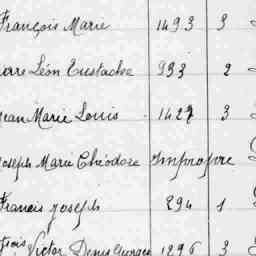 François Marie 1493 3
ierre Léon Eustache 933 2
ean Marie Louis 1427 3
Joseph Marie Théodore Impropre
Francis Joseph 294 1
Victor Denis Georges 1296 3